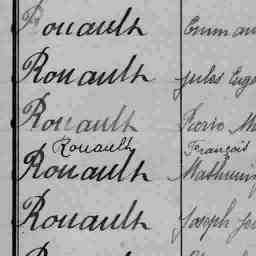 Rouault Emman
Rouault Jules Eug
Rouault Pierre M
Rouault François
Rouault Mathurin
Rouault Joseph